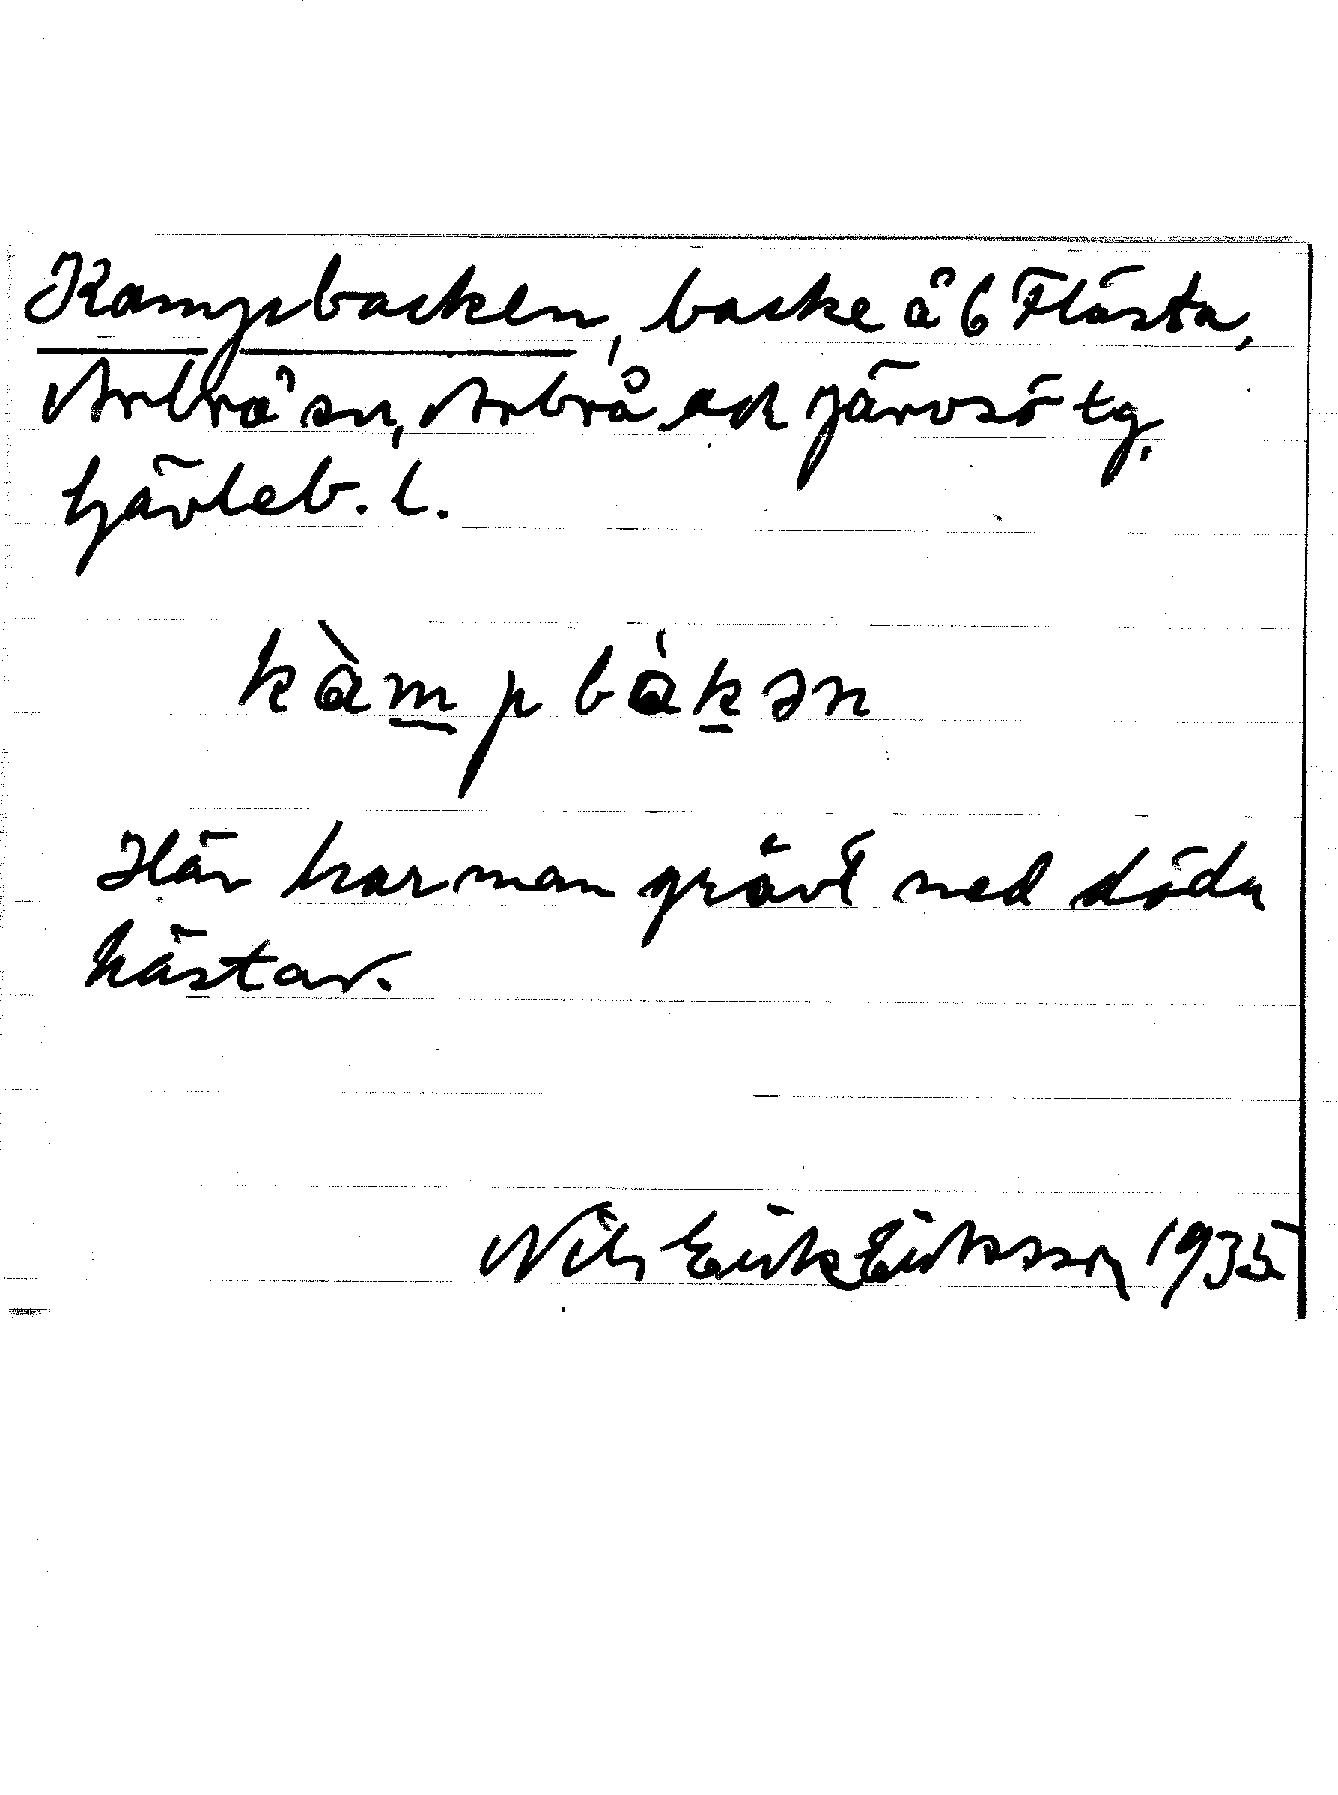 Kampbacken, backe å 6 Flästa,
Arbrå sn, Arbrå och Järvsö tg,
Gävleb. l.
kàm̲pbàk̲ən
Här har man grävt ned döda
hästar.
Nils Erik Eriksson 1935